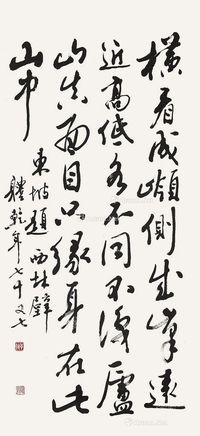 橫看成嶺側成峯遠
近高低各不同不識廬
山真面目只緣身在此
山中
東坡題西林壁
體乾年七十又七